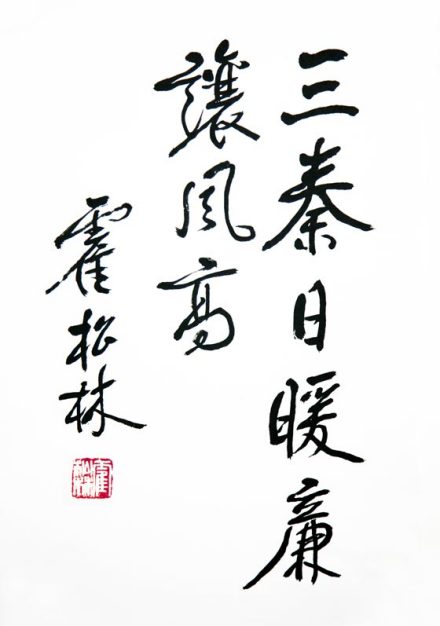 三秦日暖廉
讓風高
霍松林